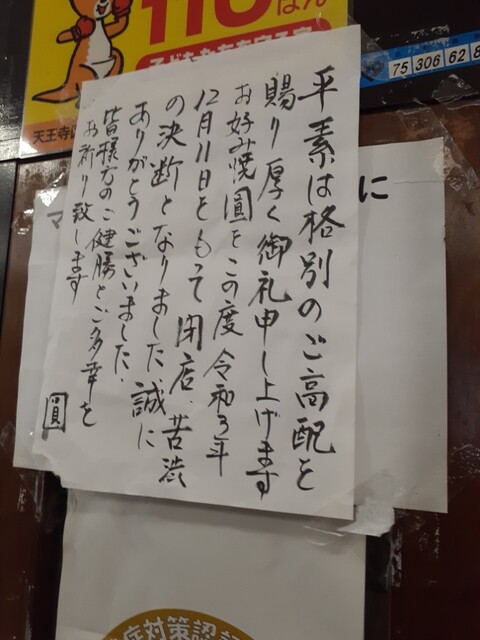 110ばん
天王寺
75 306 62 8
に
マ
平素は格別のご高配を
賜り厚く御礼申し上げます
お好み焼圓をこの度令和3年
12月11日をもって閉店、苦渋
の決断となりました誠に
ありがとうございました、
皆様方のご健勝とご多幸を
お祈り致します
圓
症対策認証